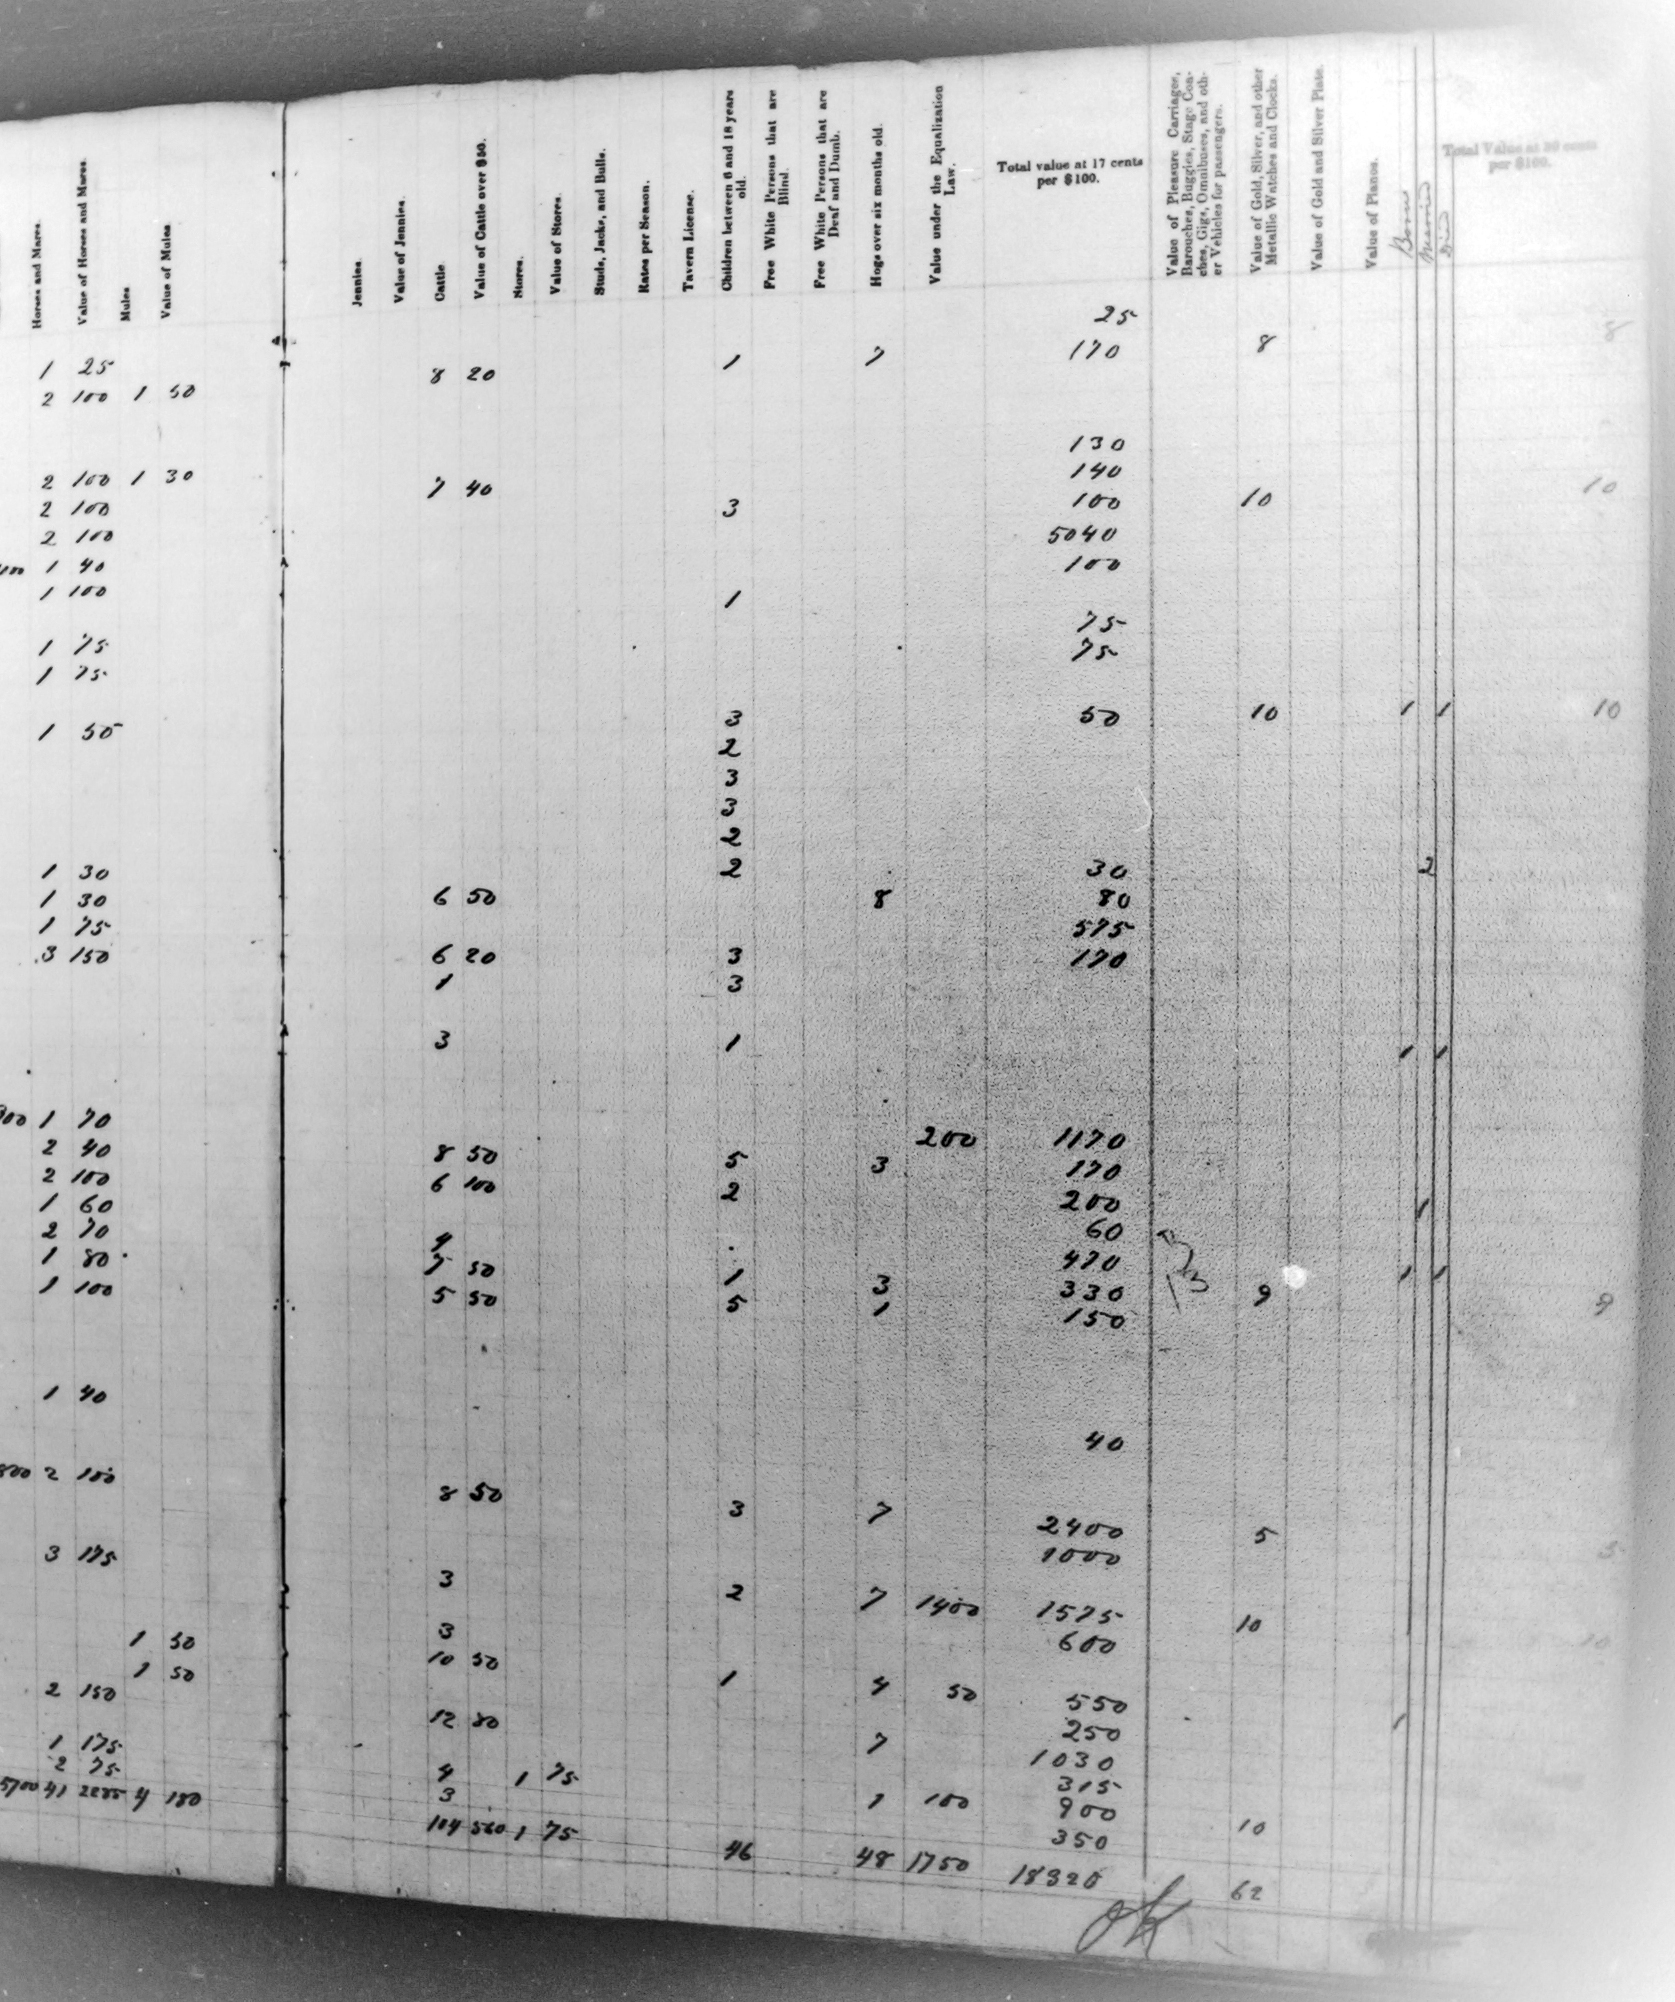 Horses and Mares.
Value of Horses and Mares.
Mules
Value of Mules
Jennies.
Value of Jennies.
Cattle
Value of Cattle over $50.
Stores.
Value of Stores.
Studs, Jacks, and Bulls.
Rates per Season.
Tavern License.
Children between 6 and 18 years old.
Free White Persons that are Blind.
Free White Persons that are Deaf and Dumb.
Hogs over six months old.
Value under the Equalization Law.
Total value at 17 cents per $100.
Value of Pleasure Carriages, Barouches, Buggies, Stage Coaches, Gigs, Omnibuses, and other Vehicles for passengers.
Value of Gold, Silver, and other Metallic Watches and Clocks.
Value of Gold and Silver Plate.
Value of Pianos.
Born
Married
Died
Total Value at 30 cents per $100.
1 25 25
2 100 1 50 8 20 1 7 170 8 8
2 100 1 30 130
2 100 7 40 140
2 100 3 100 10 10
1 40 5040
1 100 100
1
1 75 75
1 75 75
1 50 3 50 10 1 1 10
2
3
3
2
1 30 2 30 2
1 30 6 50 8 80
1 75 575
3 150 6 20 3 170
1 3
3 1 1 1
1 70 200 1170
2 40 8 50 5 3 170
2 100 6 100 2 200 1
1 60 60
2 70 4 470
1 80 7 50 1 3 330 9 1 1 9
1 100 5 50 5 1 150
1 40 40
2 100 8 50 3 7 2400 5 5
1000
3 175 3 2 7 1400 1575 10 10
600
1 50 3 550
1 50 10 50 1 4 50 250
2 150 12 80 7 1030
315
1 175 4 1 75 1 100 900
2 75 3 350 10
5700 41 2285 4 180 104 560 1 75 46 48 1750 18320 62
ok